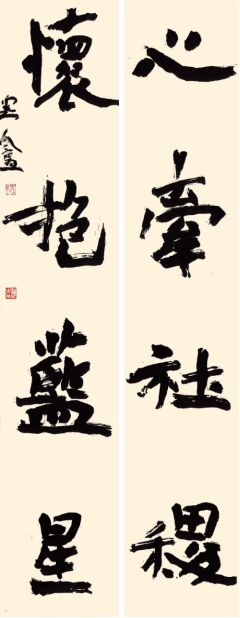 心牽社稷
懷抱藍星